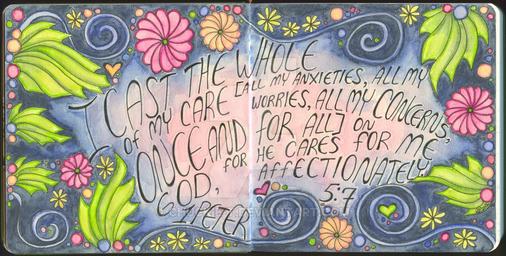 I CAST THE WHOLE
OF MY CARE [ALL MY ANXIETIES, ALL MY
WORRIES, ALL MY CONCERNS,
ONCE AND FOR ALL] ON
GOD, FOR HE CARES FOR ME
AFFECTIONATELY.
PETER 5:7